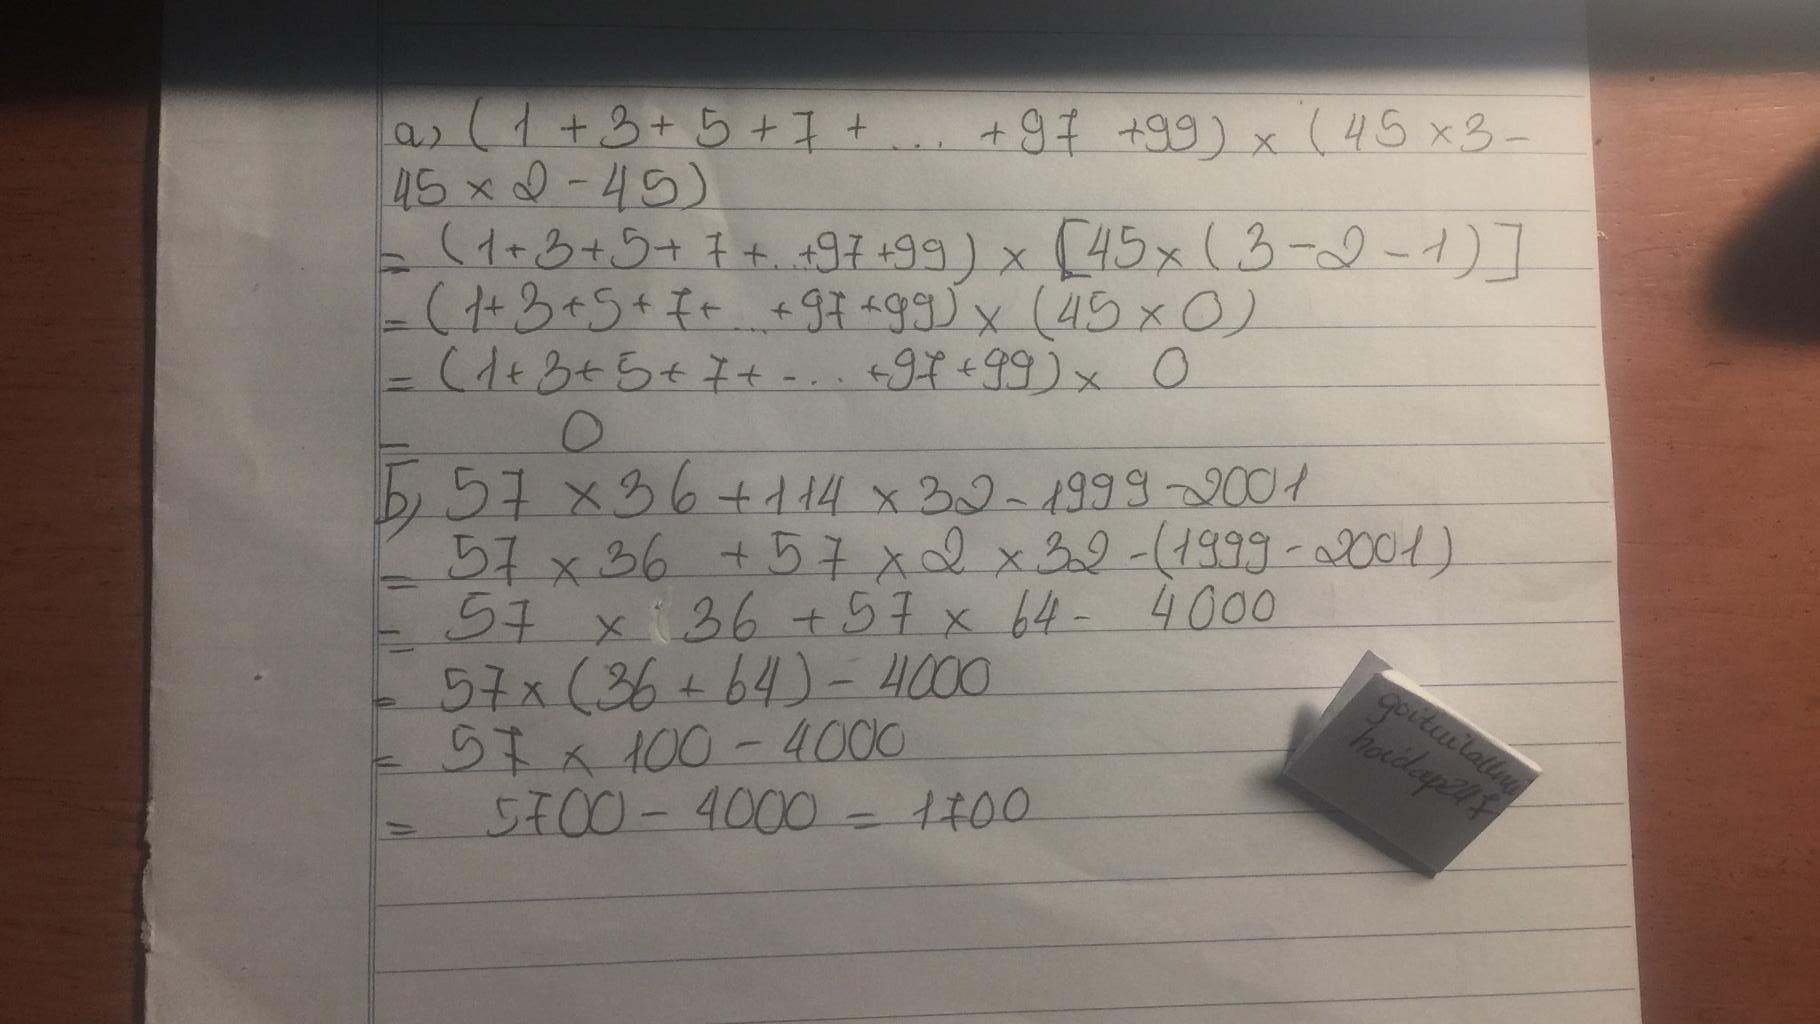 a, (1 + 3 + 5 + 7 + ... + 97 + 99) × (45 × 3 -
45 × 2 - 45)
= (1 + 3 + 5 + 7 + ... + 97 + 99) × [45 × (3 - 2 - 1)]
= (1 + 3 + 5 + 7 + ... + 97 + 99) × (45 × 0)
= (1 + 3 + 5 + 7 + .... + 97 + 99) × 0
= 0
Б, 57 × 36 + 114 × 32 - 1999 - 2001
= 57 × 36 + 57 × 2 × 32 - (1999 - 2001)
= 57 × 36 + 57 × 64 - 4000
= 57 × (36 + 64) - 4000
= 57 × 100 - 4000
= 5700 - 4000 = 1700
hoidap247